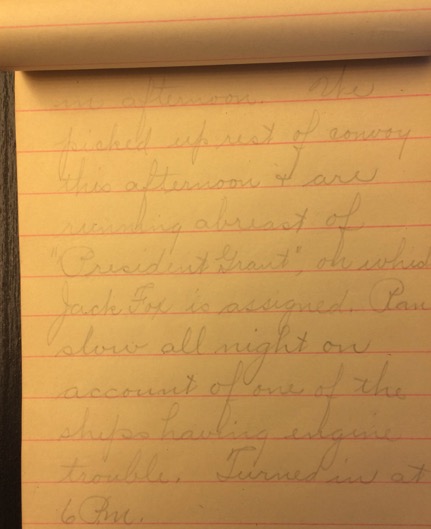 in afternoon. We
picked up rest of convoy
this afternoon & are
running abreast of
"President Grant", on which
Jack Fox is assigned. Ran
slow all night on
account of one of the
ships having engine
trouble. Turned in at
6 P.m.